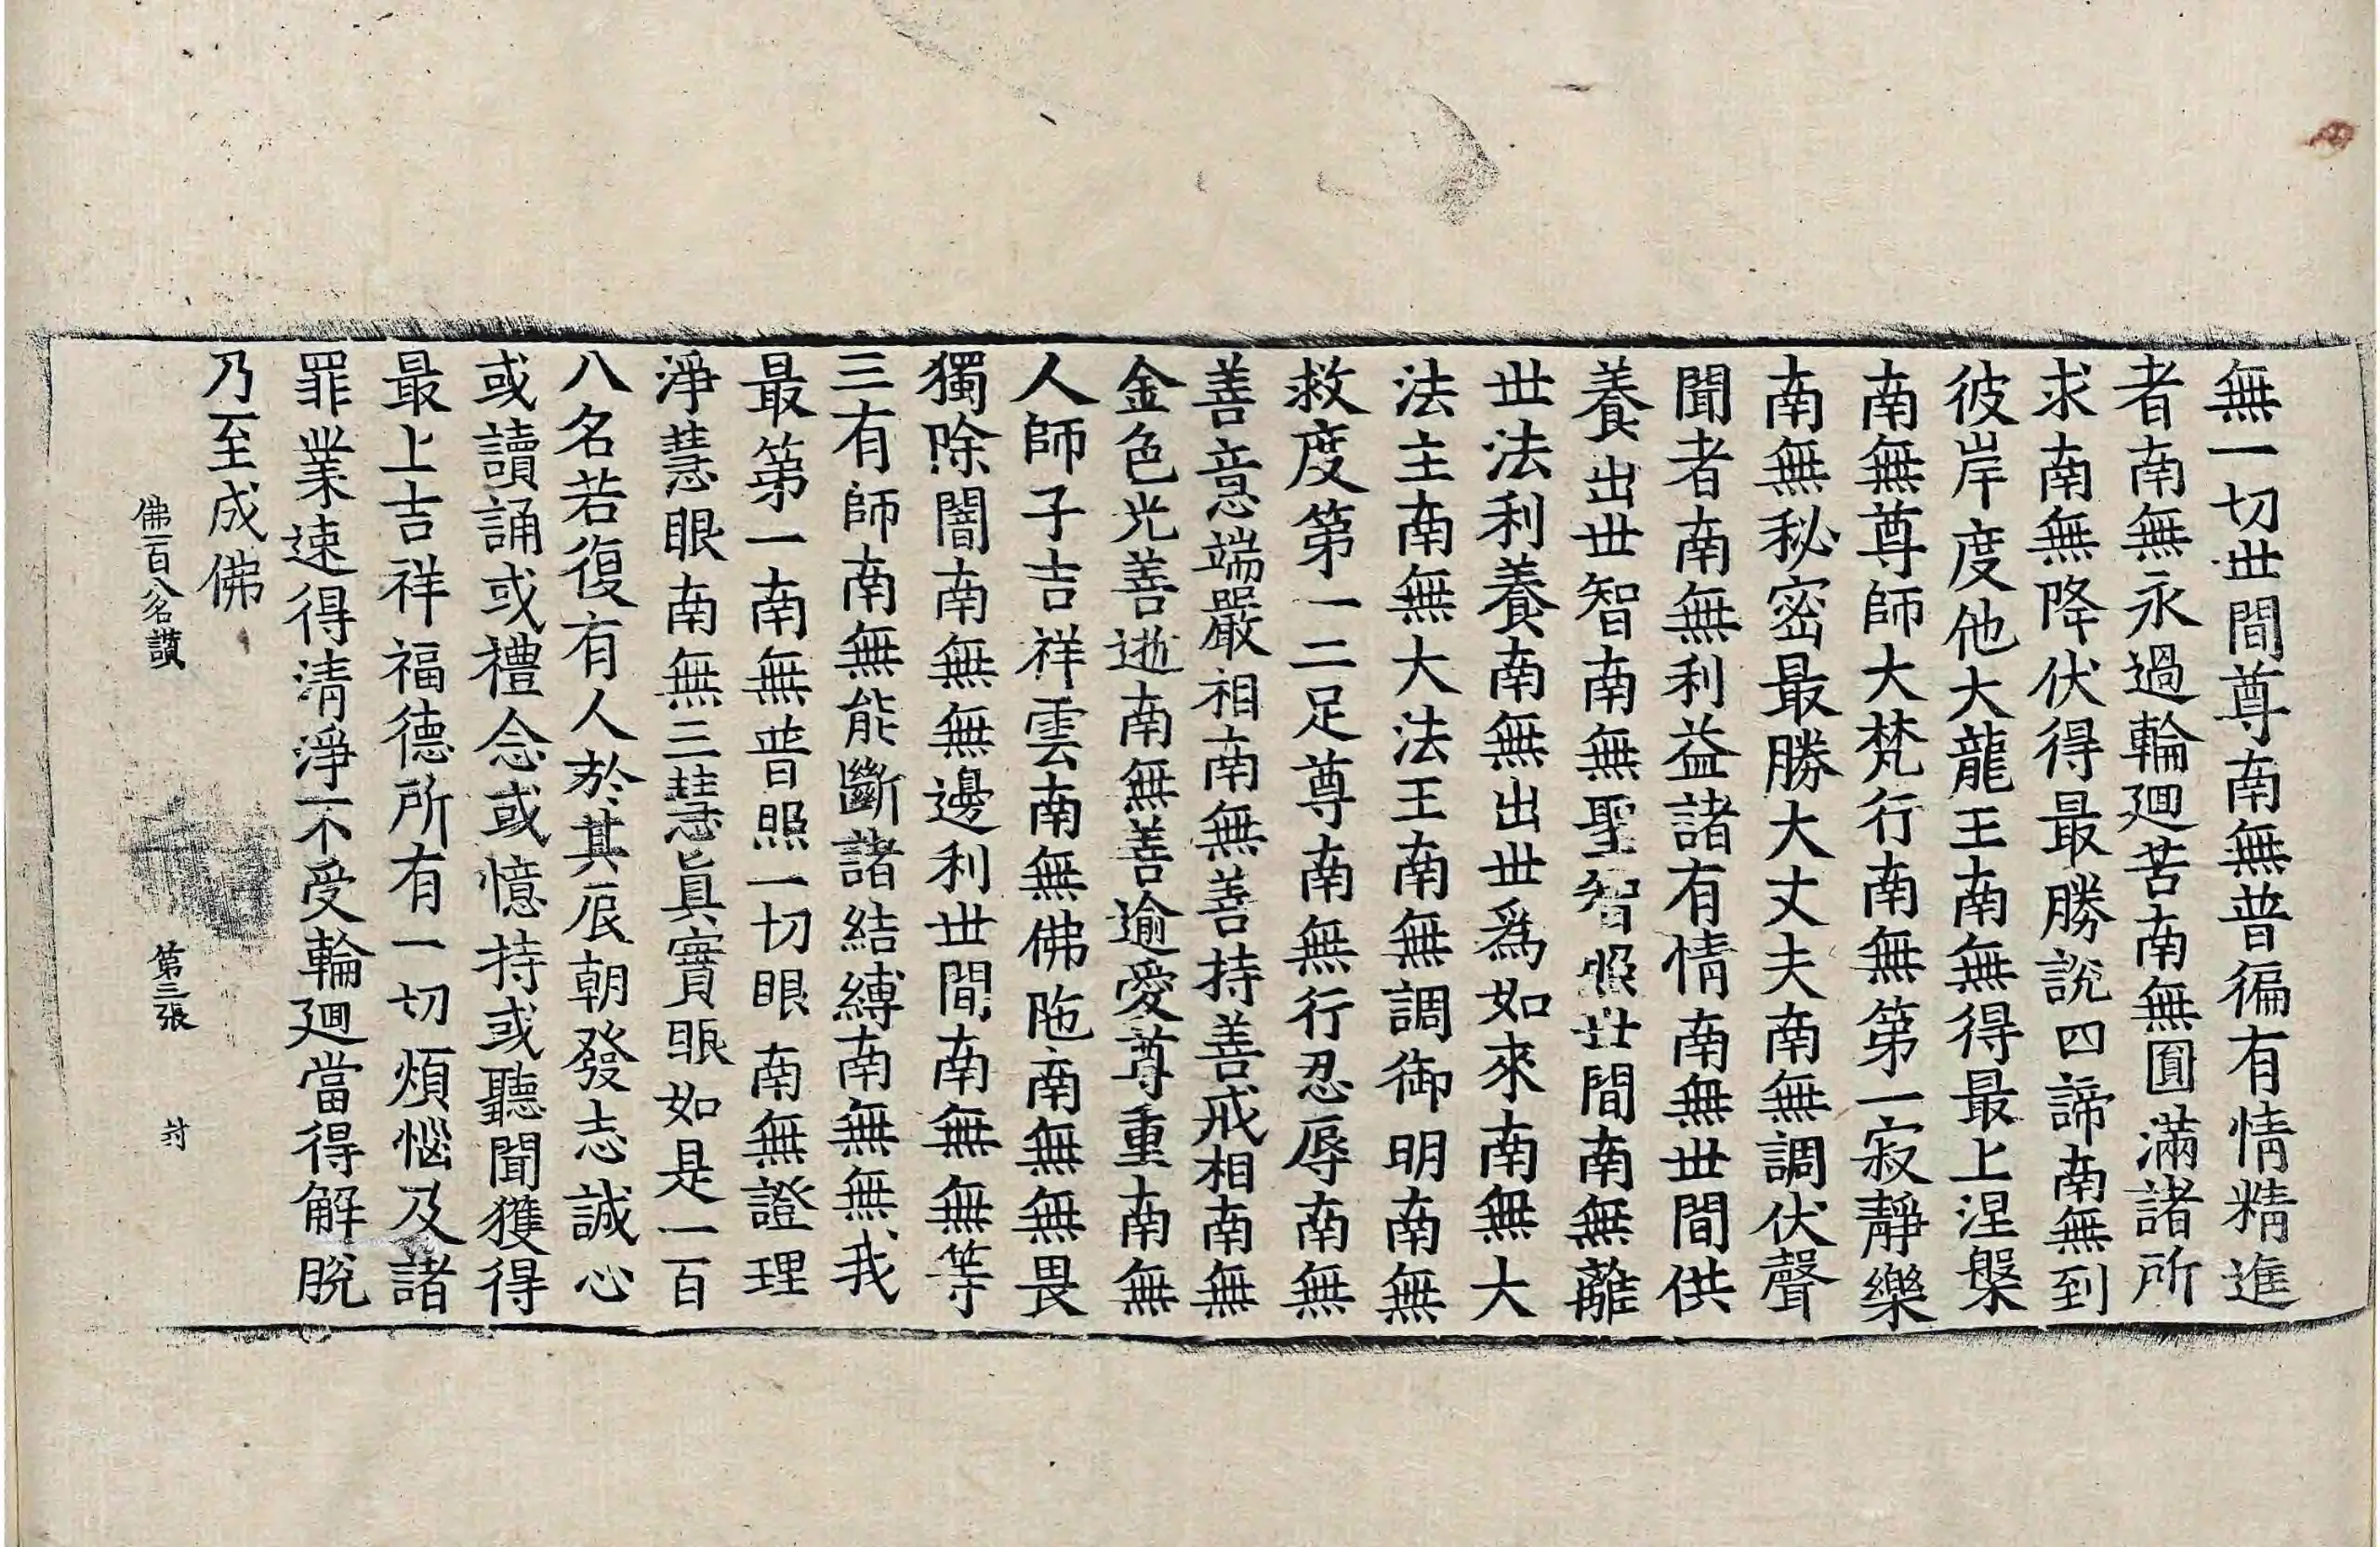 無一切世間尊南無普徧有情精進
者南無永過輪迴苦南無圓滿諸所
求南無降伏得最勝說四諦南無到
彼岸度他大龍王南無得最上涅槃
南無尊師大梵行南無第一寂靜樂
南無秘密最勝大丈夫南無調伏聲
聞者南無利益諸有情南無世間供
養出世智南無聖智照世間南無離
世法利養南無出世爲如來南無大
法主南無大法王南無調御明南無
救度第一二足尊南無行忍辱南無
善意端嚴相南無善持善戒相南無
金色光善逝南無善逾愛尊重南無
人師子吉祥雲南無佛陁南無無畏
獨除闇南無無邊利世間南無無等
三有師南無能斷諸結縛南無無我
最第一南無普照一切眼南無證理
淨慧眼南無三慧眞實眼如是一百
八名若復有人於其辰朝發志誠心
或讀誦或禮念或憶持或聽聞獲得
最上吉祥福德所有一切煩惱及諸
罪業速得清淨不受輪迴當得解脫
乃至成佛
佛一百八名讚 第三張 封